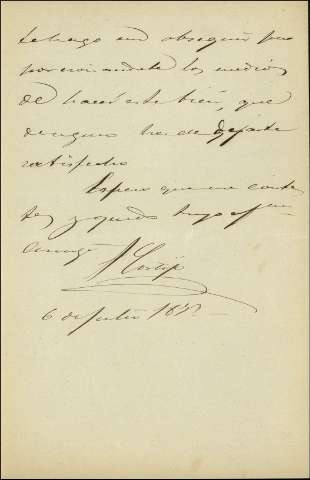 te hago un obsequio pro
porcionandote los medios
de hacer este bien, que
de seguro ha de dejarte
satisfecho
Espero que me contes
tes y quedo tuyo af
amigo
6 de Julio